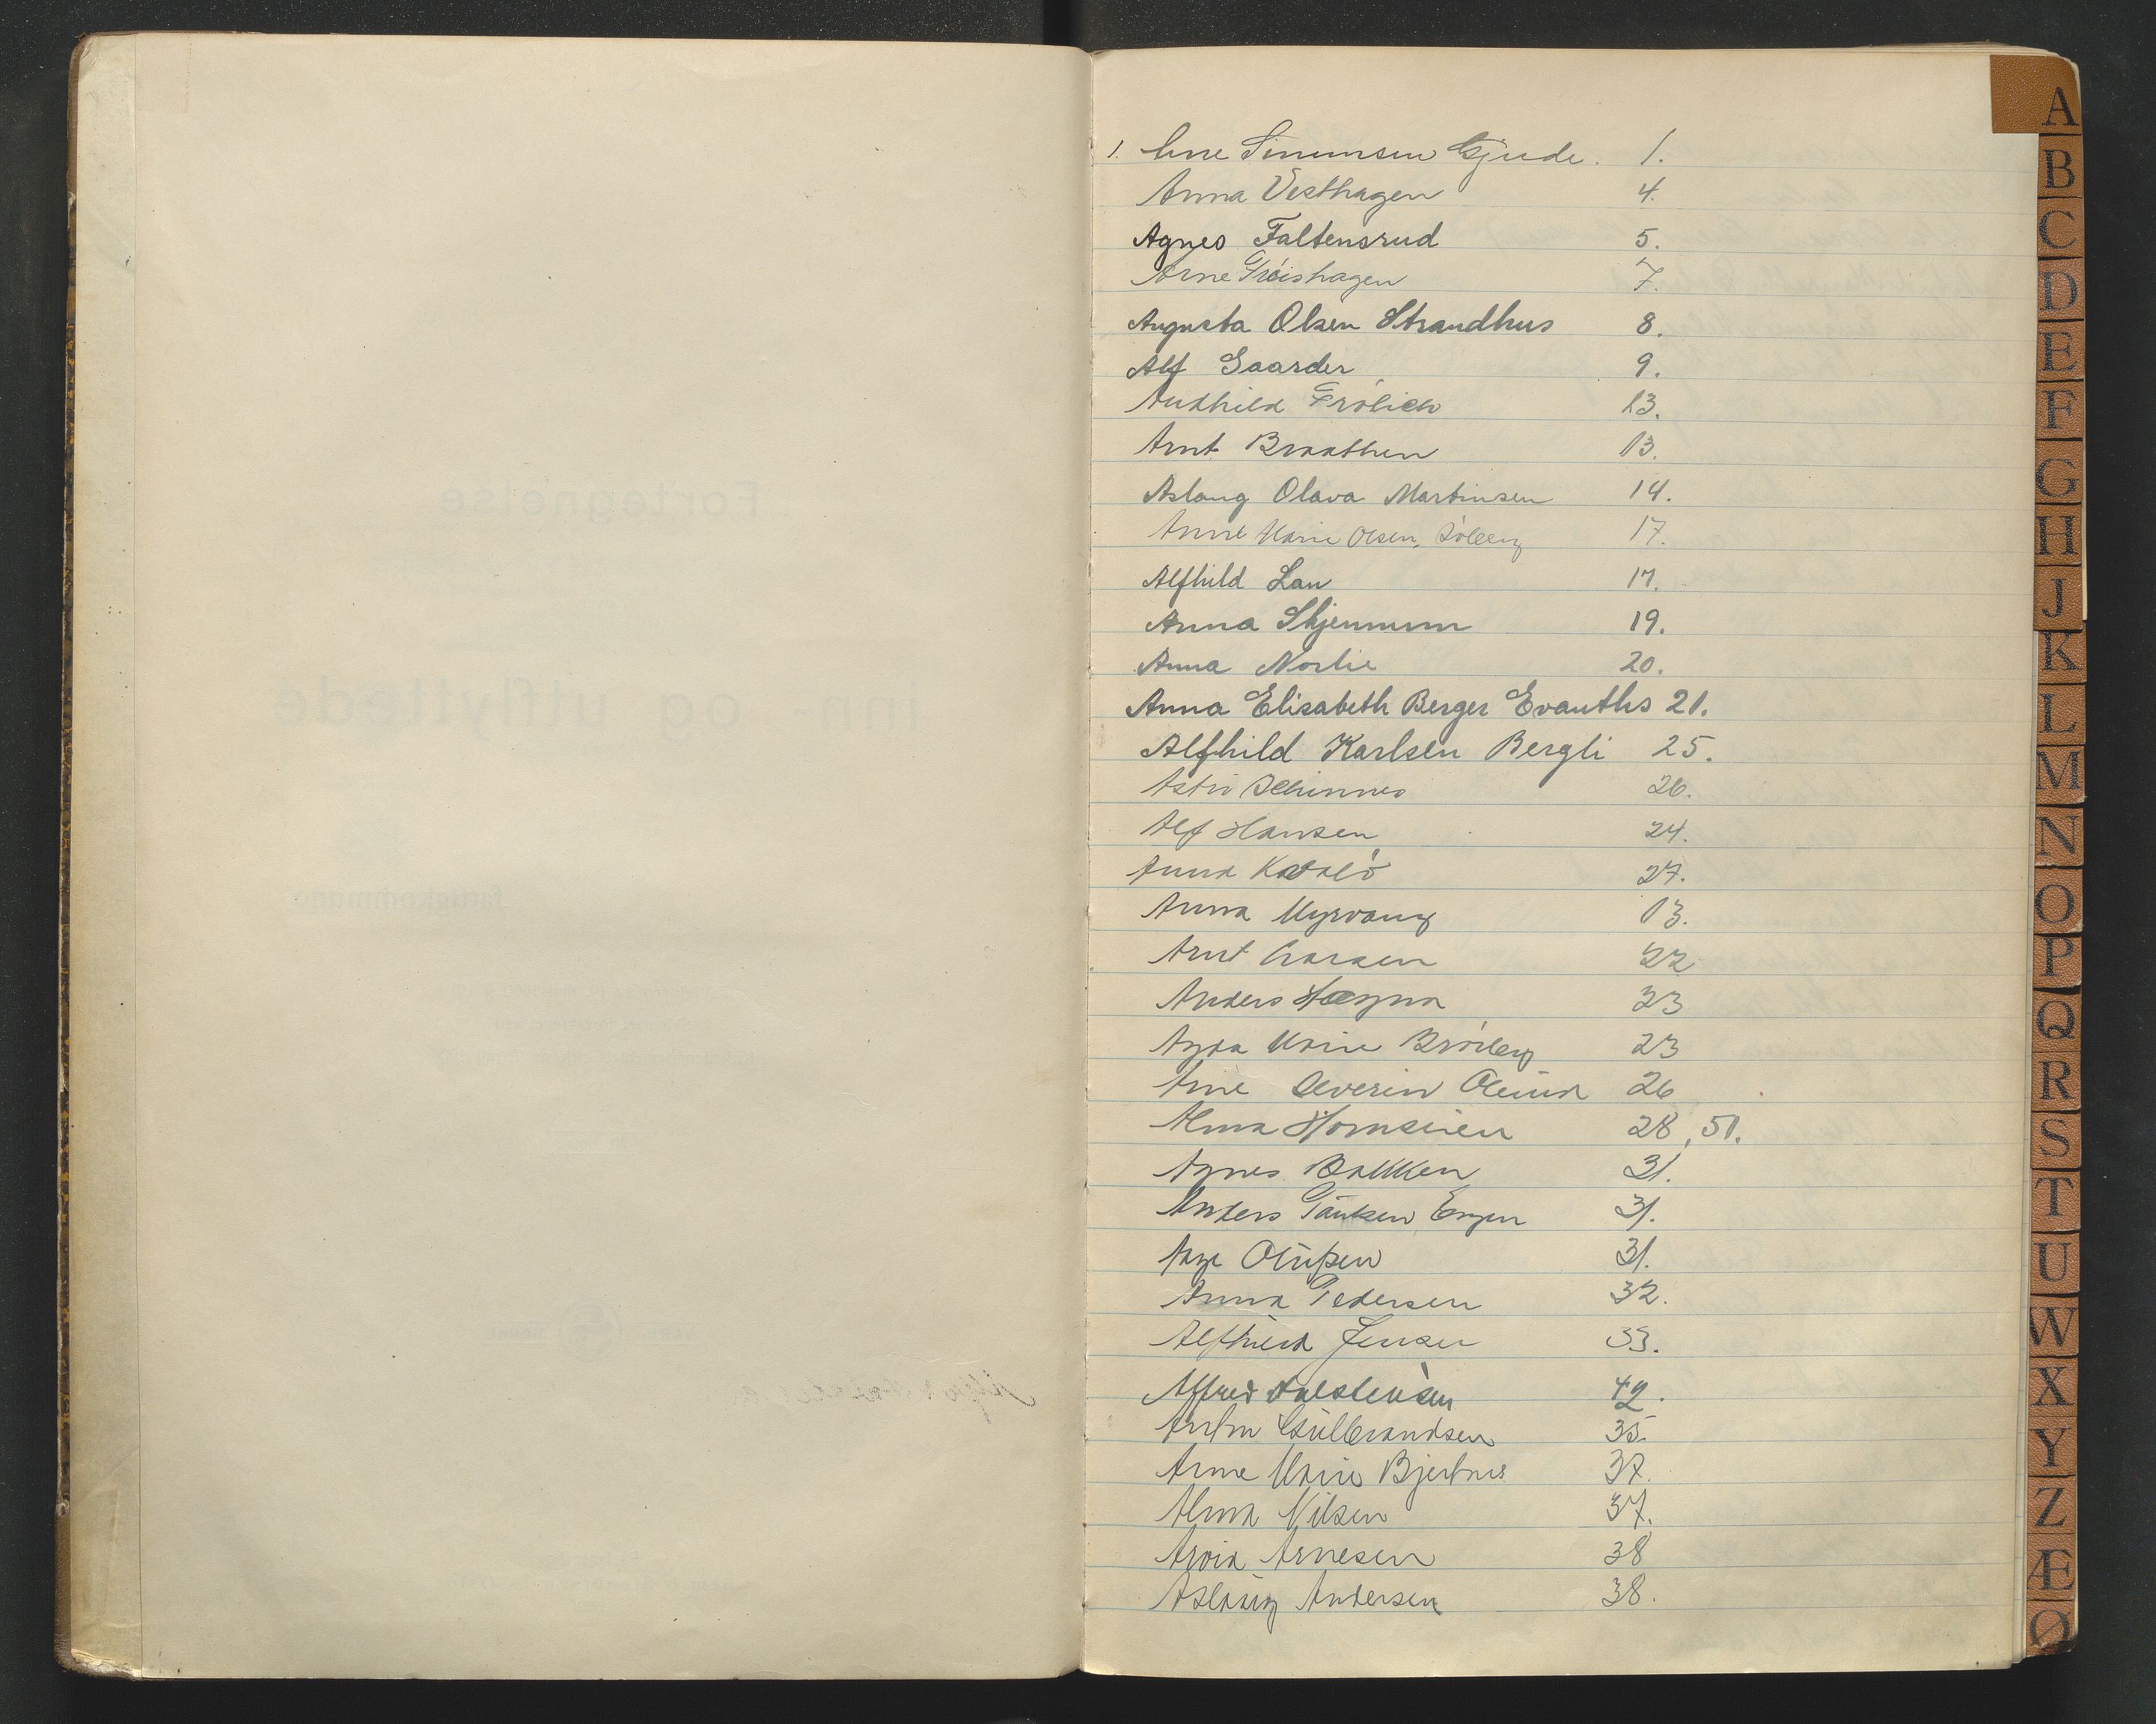 Fortegnelse
inn- og utflyttede
fattigkommune
1. Arne Simensen Gjude. 1.
Anna Vesthagen 4.
Agnes Faltensrud 5.
Arne Grøishagen 7.
Augusta Olsen Strandhus 8.
Alf Gaarder 9.
Audhild Frólich 13.
Arnt Braathen 13.
Aslaug Olava Martinsen 14.
Anne Marie Olsen, Sólberg 17.
Alfhild Lau 17.
Anna Skjennum 19.
Anna Norlie 20.
Anna Elisabeth Berger Evanths 21.
Alfhild Karlsen Bergli 25.
26.
Alf Hansen 24.
Anna 27.
Anna Myrvang 13.
Arnt Larsen 22
Anders Høgna 23
Agda Marie Bróberg 23
Arne Severin Ølund 26
Alma Hornseien 28, 51.
Agnes Bakken 31.
Anders Paulsen Engen 31.
Aage Olufsen 31.
Anna Pedersen 32.
Alfhild Jensen 33.
Alfred 42.
Anton Gulbrandsen 35.
Anne Marie Bjertnes 37.
Alma Nilsen 37.
Arvid Arnesen 38
Aslaug Andersen 38.
A
B
C
D
E
F
G
H
J
K
L
M
N
O
P
Q
R
S
T
U
W
X
Y
Z
Æ
Ø